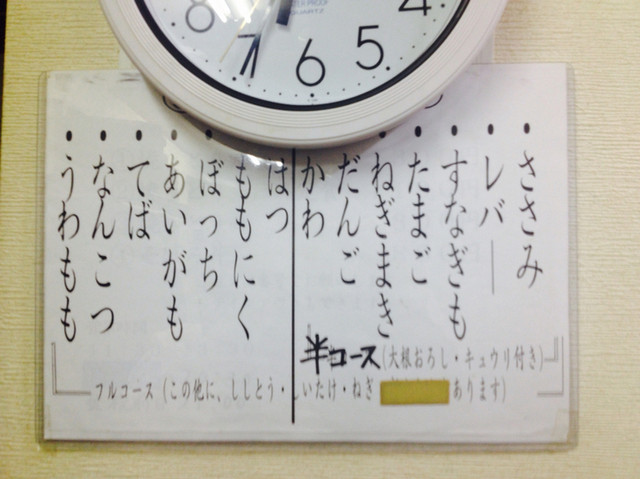 8 7 6 5 4
QUARTZ
・ささみ
・レバー
・すなぎも
・たまご
・ねぎまき
だんご
かわ
はつ
ももにく
・ぼっち
・あいがも
・てば
・なんこつ
・うわもも
半コース(大根おろし・キュウリ付き)
フルコース(この他に、ししとう・しいたけ・ねぎ あります)